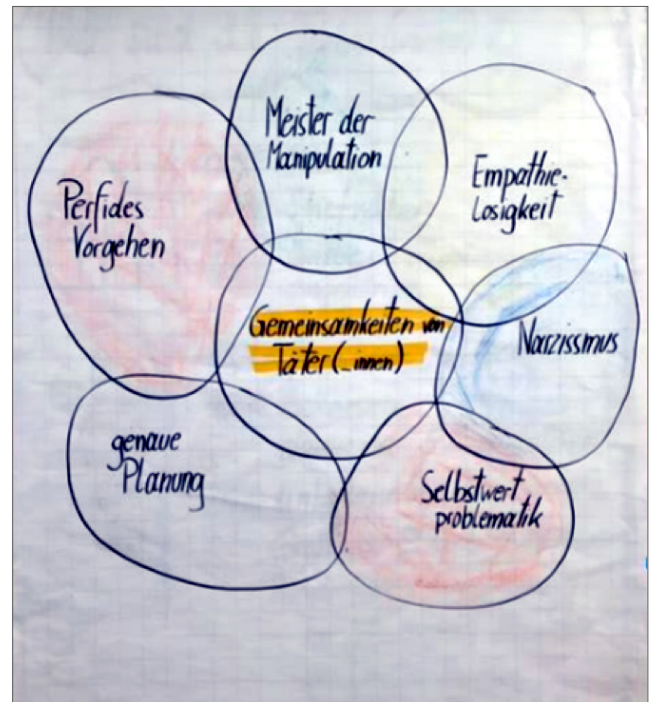 Meister der
Manipulation
Empathie-
Losigkeit
Perfides
Vorgehen
Gemeinsamkeiten von
Täter(_innen)
Narzissmus
genaue
Planung
Selbstwert
problematik